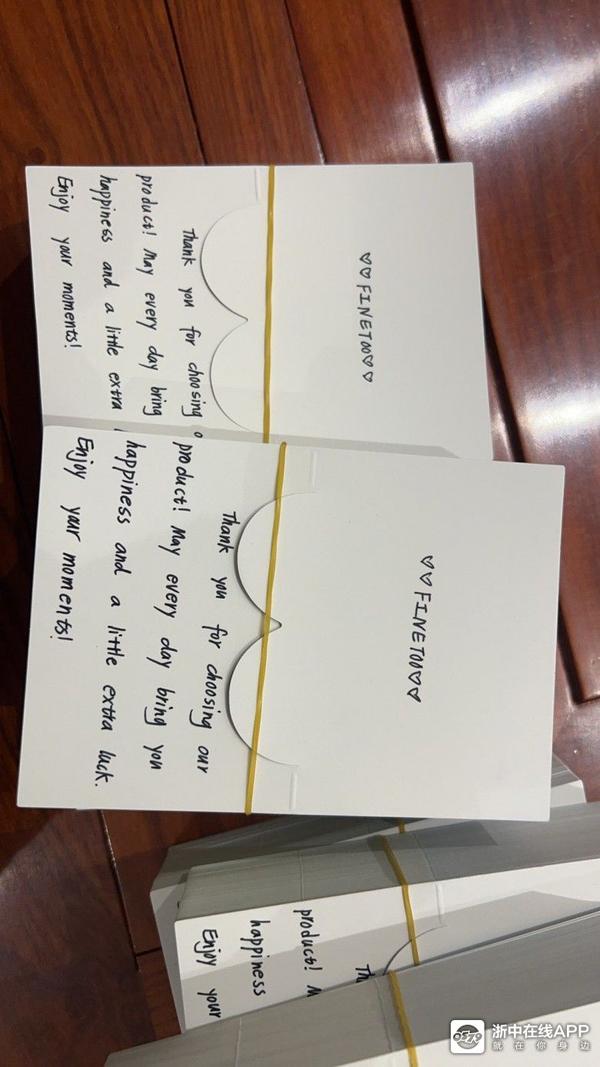 ♡♡FINETOO♡♡
Thank you for choosing
product! May every day bring
happiness and a little extra
Enjoy your moments!
♡♡FINETOO♡♡
Thank you for choosing our
product! May every day bring you
happiness and a little extra luck.
Enjoy your moments!
Th
product! M
happiness
Enjoy your
浙中在线APP
就在你身边